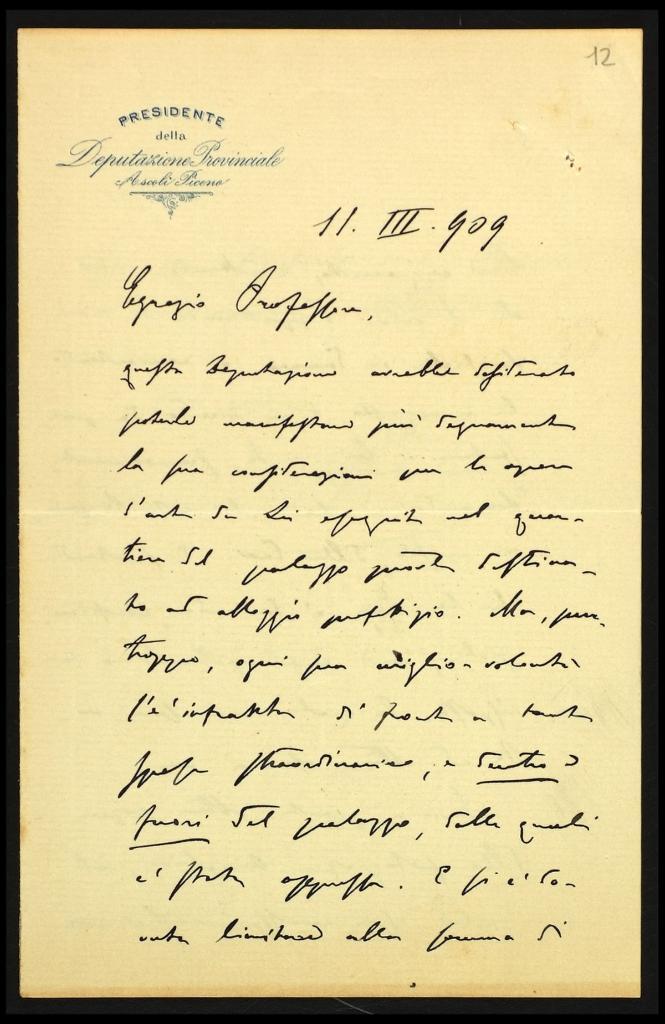 12
PRESIDENTE
della
Deputazione Provinciale
Ascoli Piceno
11. III. 909
Egregio Professore,
questa Deputazione avrebbe desiderato
poterle manifestare più degnamente
la sua considerazione per le opere
d'arte da Lei eseguite nel quar-
tiere del palazzo prov.le destina-
to ad alloggio prefettizio. Ma, pur-
troppo, ogni sua miglior volontà
s'è infranta di fronte a tante
spese straordinarie, e dentro e
fuori del palazzo, dalle quali
è stata oppressa. E si è do-
vuta limitare alla somma di